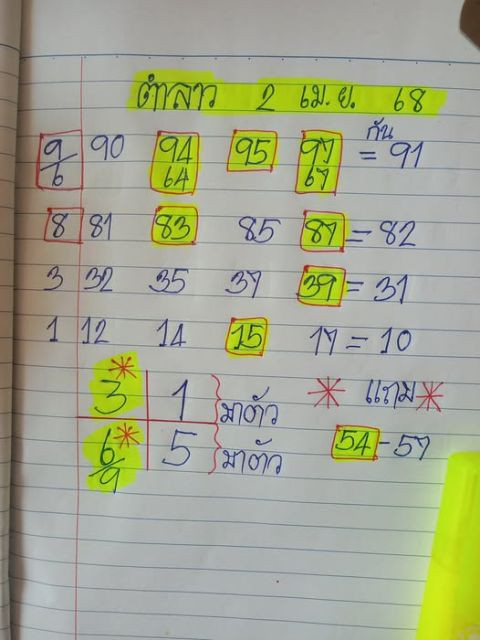 ตำลาว 2 เม.ย. 68
9/6 90 94 95 97 กัน = 91
64 67
8 81 83 85 87 = 82
3 32 35 37 39 = 31
1 12 14 15 17 = 10
3 1 } มาตัว * แถม *
6/9 5 } มาตัว 54-57